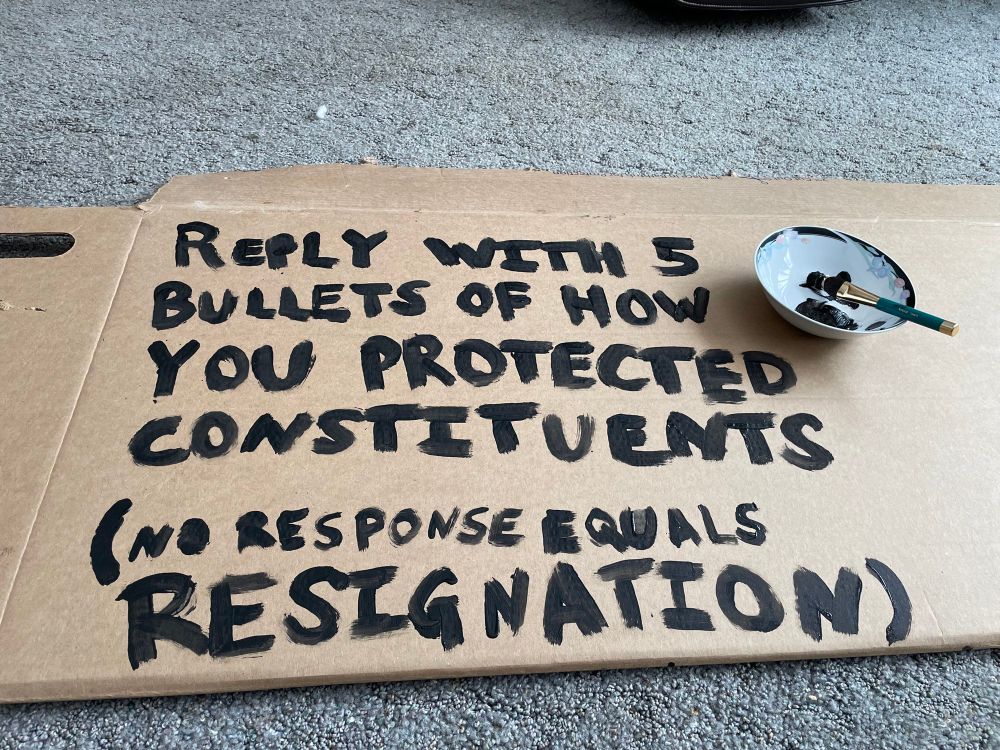 REPLY WITH 5
BULLETS OF HOW
YOU PROTECTED
CONSTITUENTS
(NO RESPONSE EQUALS
RESIGNATION)